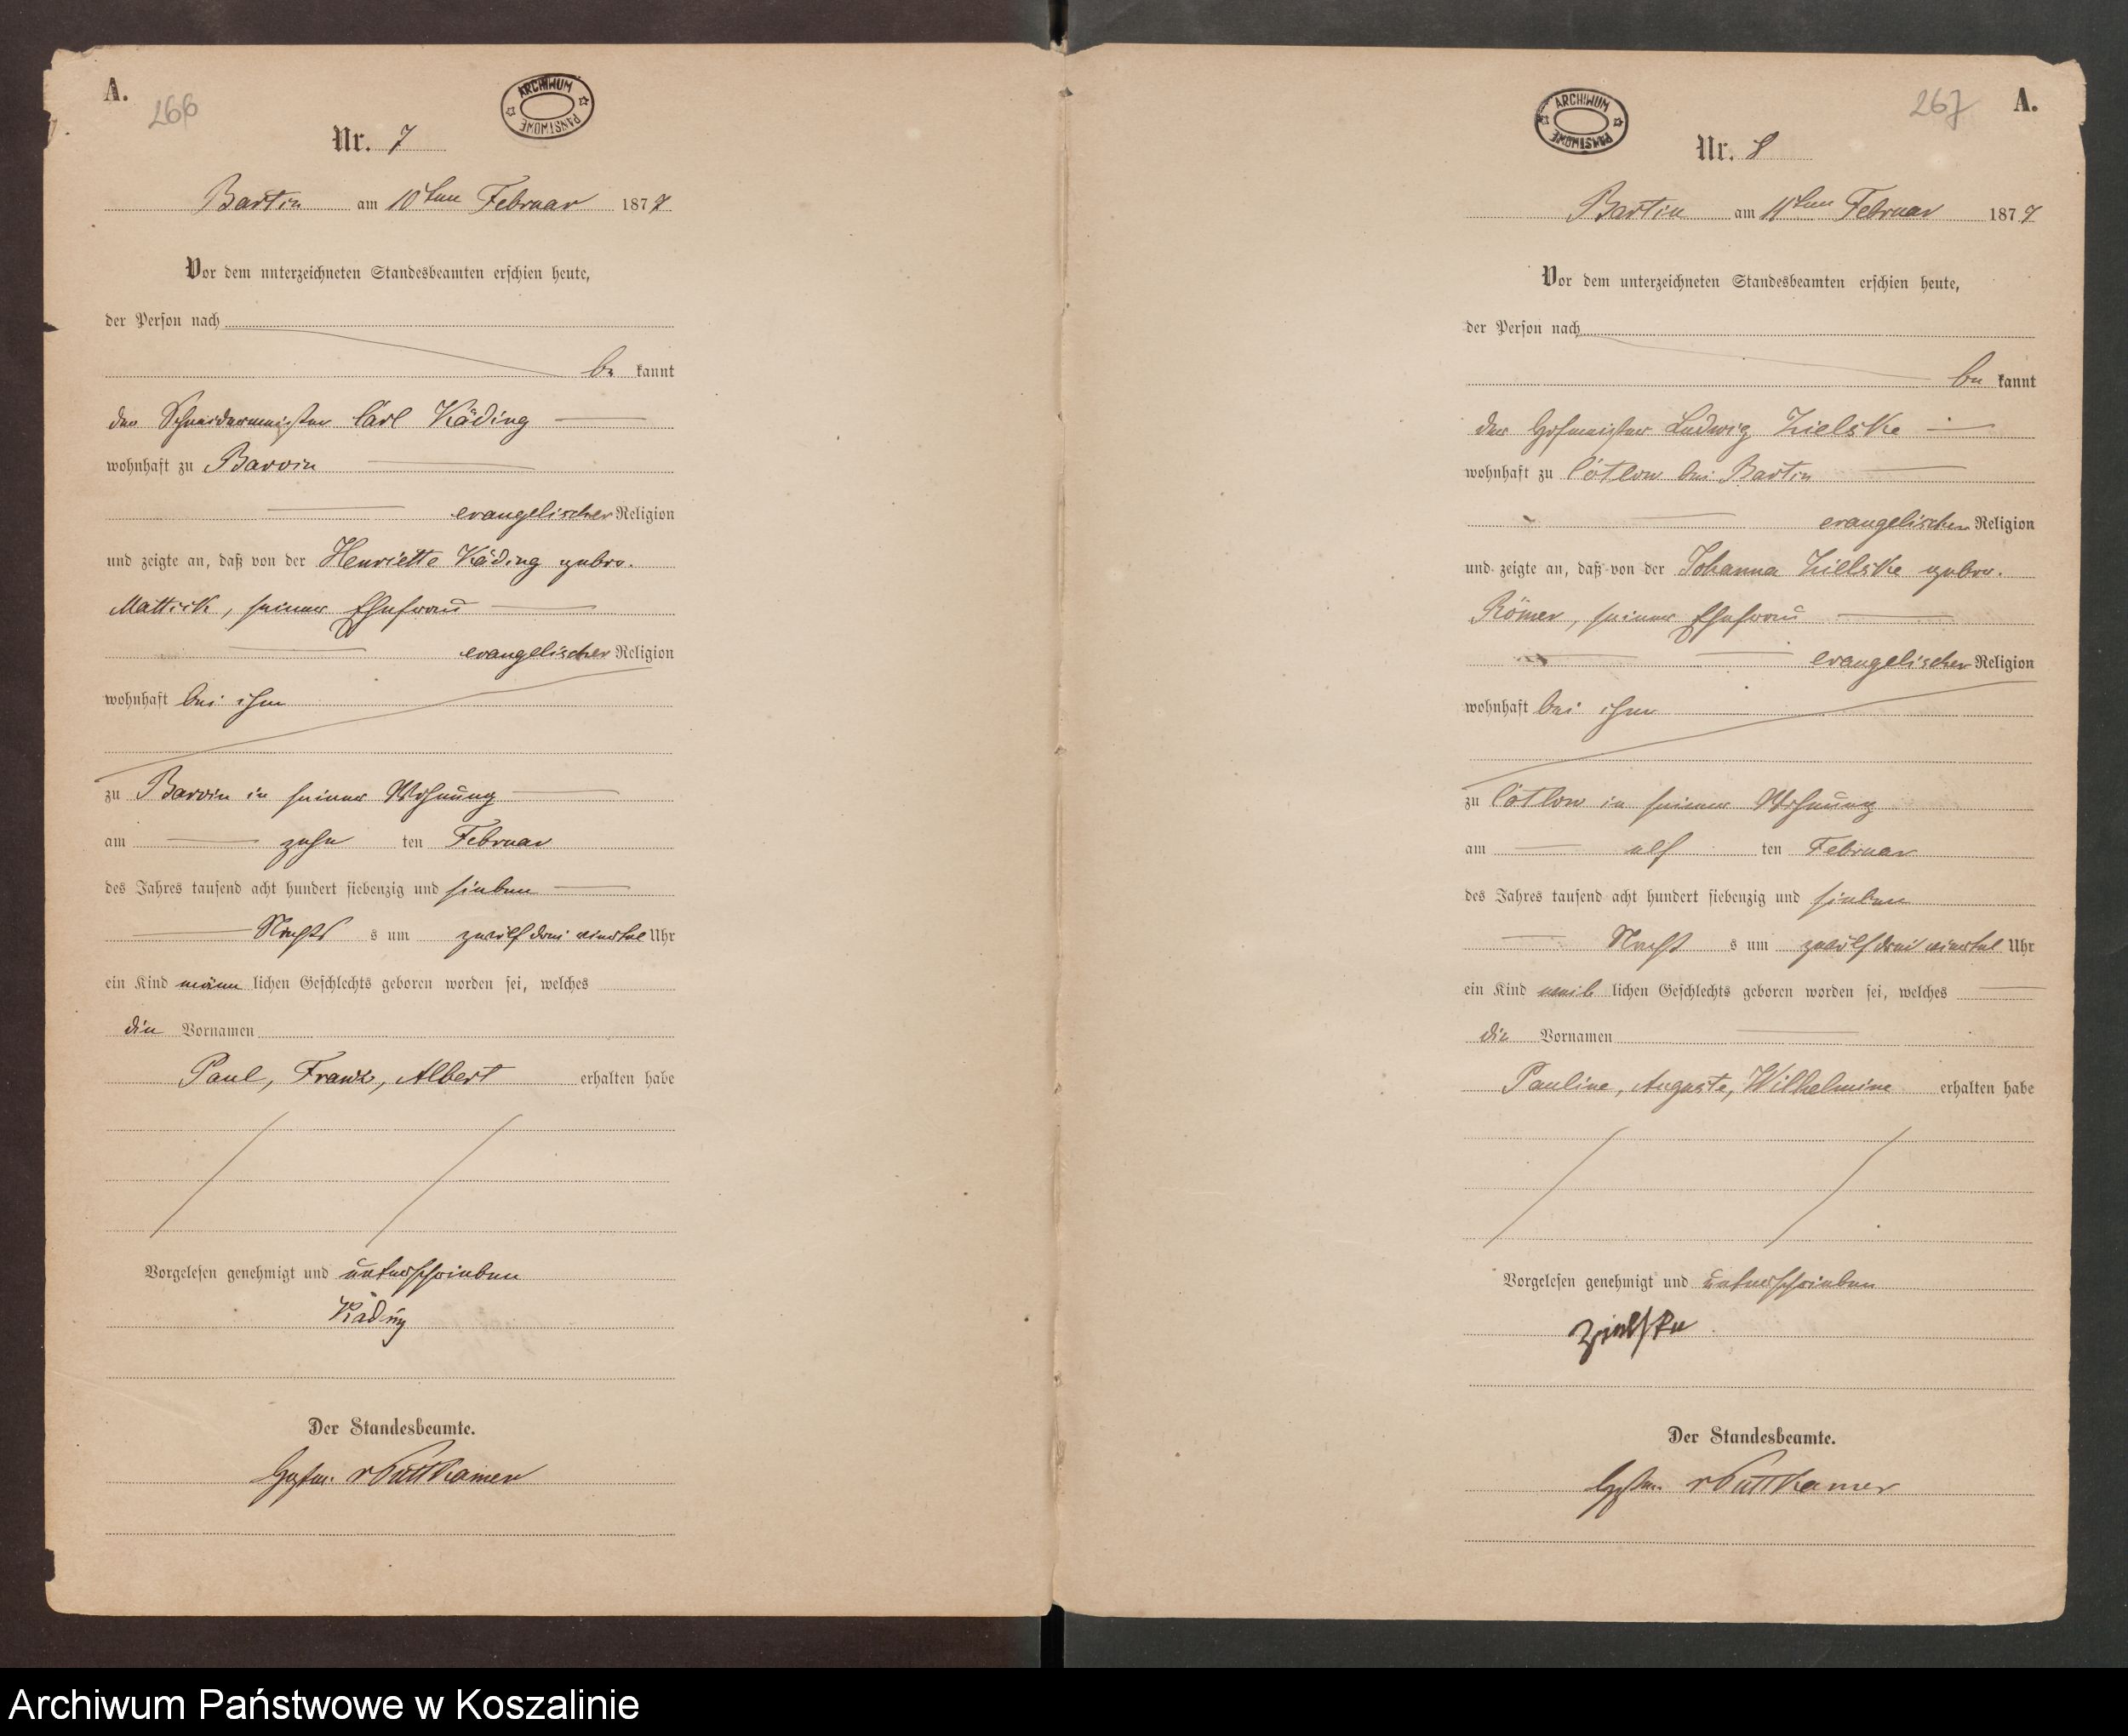 A.
266
ARCHIWUM PAŃSTWOWE
Nr. 7
Bartin am 10ten Februar 1877
Vor dem unterzeichneten Standesbeamten erschien heute,
der Person nach
be kannt
der Schneidermeister Carl Käding
wohnhaft zu Barvin
evangelischer Religion
und zeigte an, daß von der Henriette Käding gebor.
Mattick, seiner Ehefrau
evangelischer Religion
wohnhaft bei ihm
zu Barvin in seiner Wohnung
am zehn ten Februar
des Jahres tausend acht hundert siebenzig und sieben
Nacht s um zwölf drei viertel Uhr
ein Kind männ lichen Geschlechts geboren worden sei, welches
die Vornamen
Paul, Franz, Albert erhalten habe
Vorgelesen genehmigt und unterschrieben
Käding
Der Standesbeamte.
vPuttkamer
267 A.
ARCHIWUM PAŃSTWOWE
Nr. 8
Bartin am 11ten Februar 1877
Vor dem unterzeichneten Standesbeamten erschien heute,
der Person nach
be kannt
der Hofmeister Ludwig Zielske
wohnhaft zu Cötlow bei Bartin
evangelischer Religion
und zeigte an, daß von der Johanna Zielske gebor.
Römer, seiner Ehefrau
evangelischer Religion
wohnhaft bei ihm
zu Cötlow in seiner Wohnung
am elf ten Februar
des Jahres tausend acht hundert siebenzig und sieben
Nacht s um zwölf drei viertel Uhr
ein Kind weib lichen Geschlechts geboren worden sei, welches
die Vornamen
Pauline, Auguste, Wilhelmine erhalten habe
Vorgelesen genehmigt und unterschrieben
Zielske
Der Standesbeamte.
vPuttkamer
Archiwum Państwowe w Koszalinie